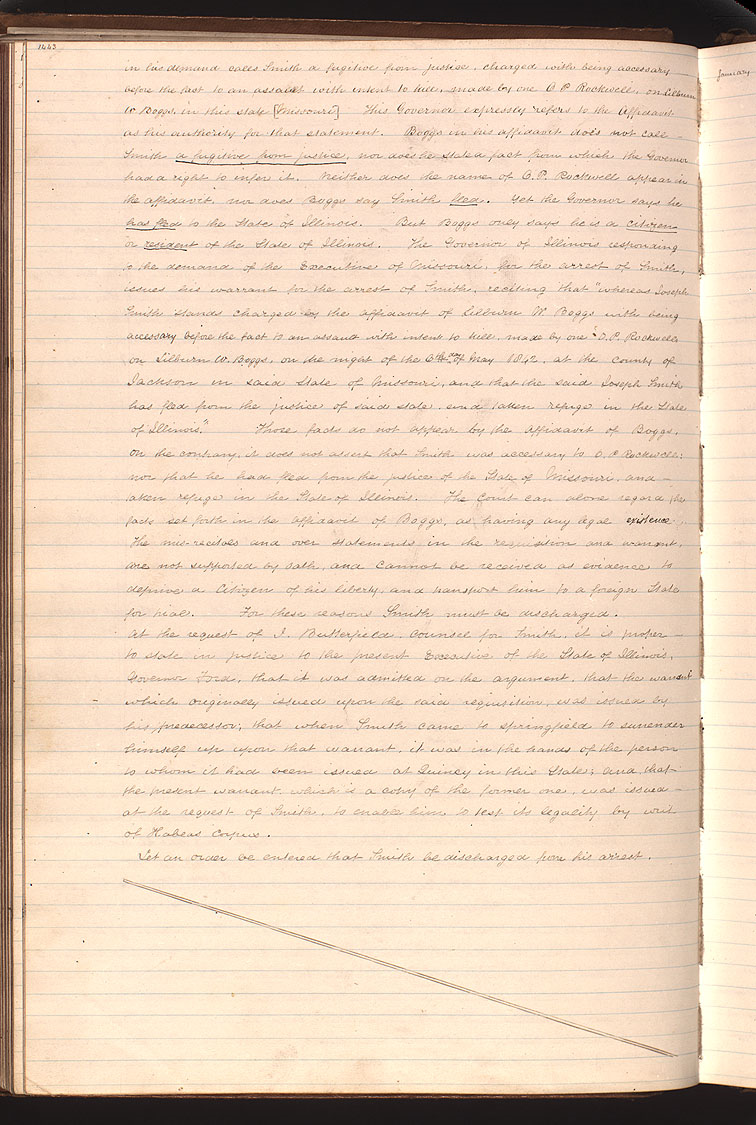 1443
January
in his demand calls Smith a fugitive from justice, charged with being accessary
before the fact to an assault with intent to kill, made by one O. P. Rockwell, on Lilburn
W Boggs, in this state [Missouri] This Governor expressly refers to the Affidavit
as his authority for that statement. Boggs in his affidavit does not call
Smith a fugitive from justice, nor does he state a fact from which the Governor
had a right to infer it. Neither does the name of O. P. Rockwell appear in
the affidavit, nor does Boggs say Smith fled. Yet the Governor says he
has fled to the State of Illinois. But Boggs only says he is a citizen
or resident of the State of Illinois. The Governor of Illinois responding
to the demand of the Executive of Missouri, for the arrest of Smith,
issues his warrant for the arrest of Smith, reciting that "whereas Joseph
Smith stands charged by the affidavit of Lilburn W. Boggs with being
accessary before the fact to an assault with intent to kill, made by one O. P. Rockwell
on Lilburn W. Boggs, on the night of the 6th day of May 1842, at the county of
Jackson in said state of Missouri, and that the said Joseph Smith
has fled from the justice of said state, and taken refuge in the State
of Illinois." Those facts do not appear by the affidavit of Boggs,
on the contrary, it does not assert that Smith was accessary to O. P. Rockwell;
nor that he had fled from the justice of the State of Missouri, and
taken refuge in the State of Illinois. The Court can alone regard the
facts set forth in the affidavit of Boggs, as having any legal existence,
The mis-recitals and over statements in the requisition and warrant,
are not supported by oath, and cannot be received as evidence to
deprive a Citizen of his liberty, and transport him to a foreign State
for trial. For these reasons Smith must be discharged.
At the request of J. Butterfield, counsel for Smith, it is proper
to state in justice to the present Executive of the State of Illinois,
Governor Ford, that it was admitted on the argument, that the warrant
which originally issued upon the said requisition, was issued by
his predecessor; that when Smith came to Springfield to surrender
himself up upon that warrant, it was in the hands of the person
to whom it had been issued at Quincy in this State; and that
the present warrant, which is a copy of the former one, was issued
at the request of Smith, to enable him to test its legality by writ
of Habeas Corpus.
Let an order be entered that Smith be discharged from his arrest.